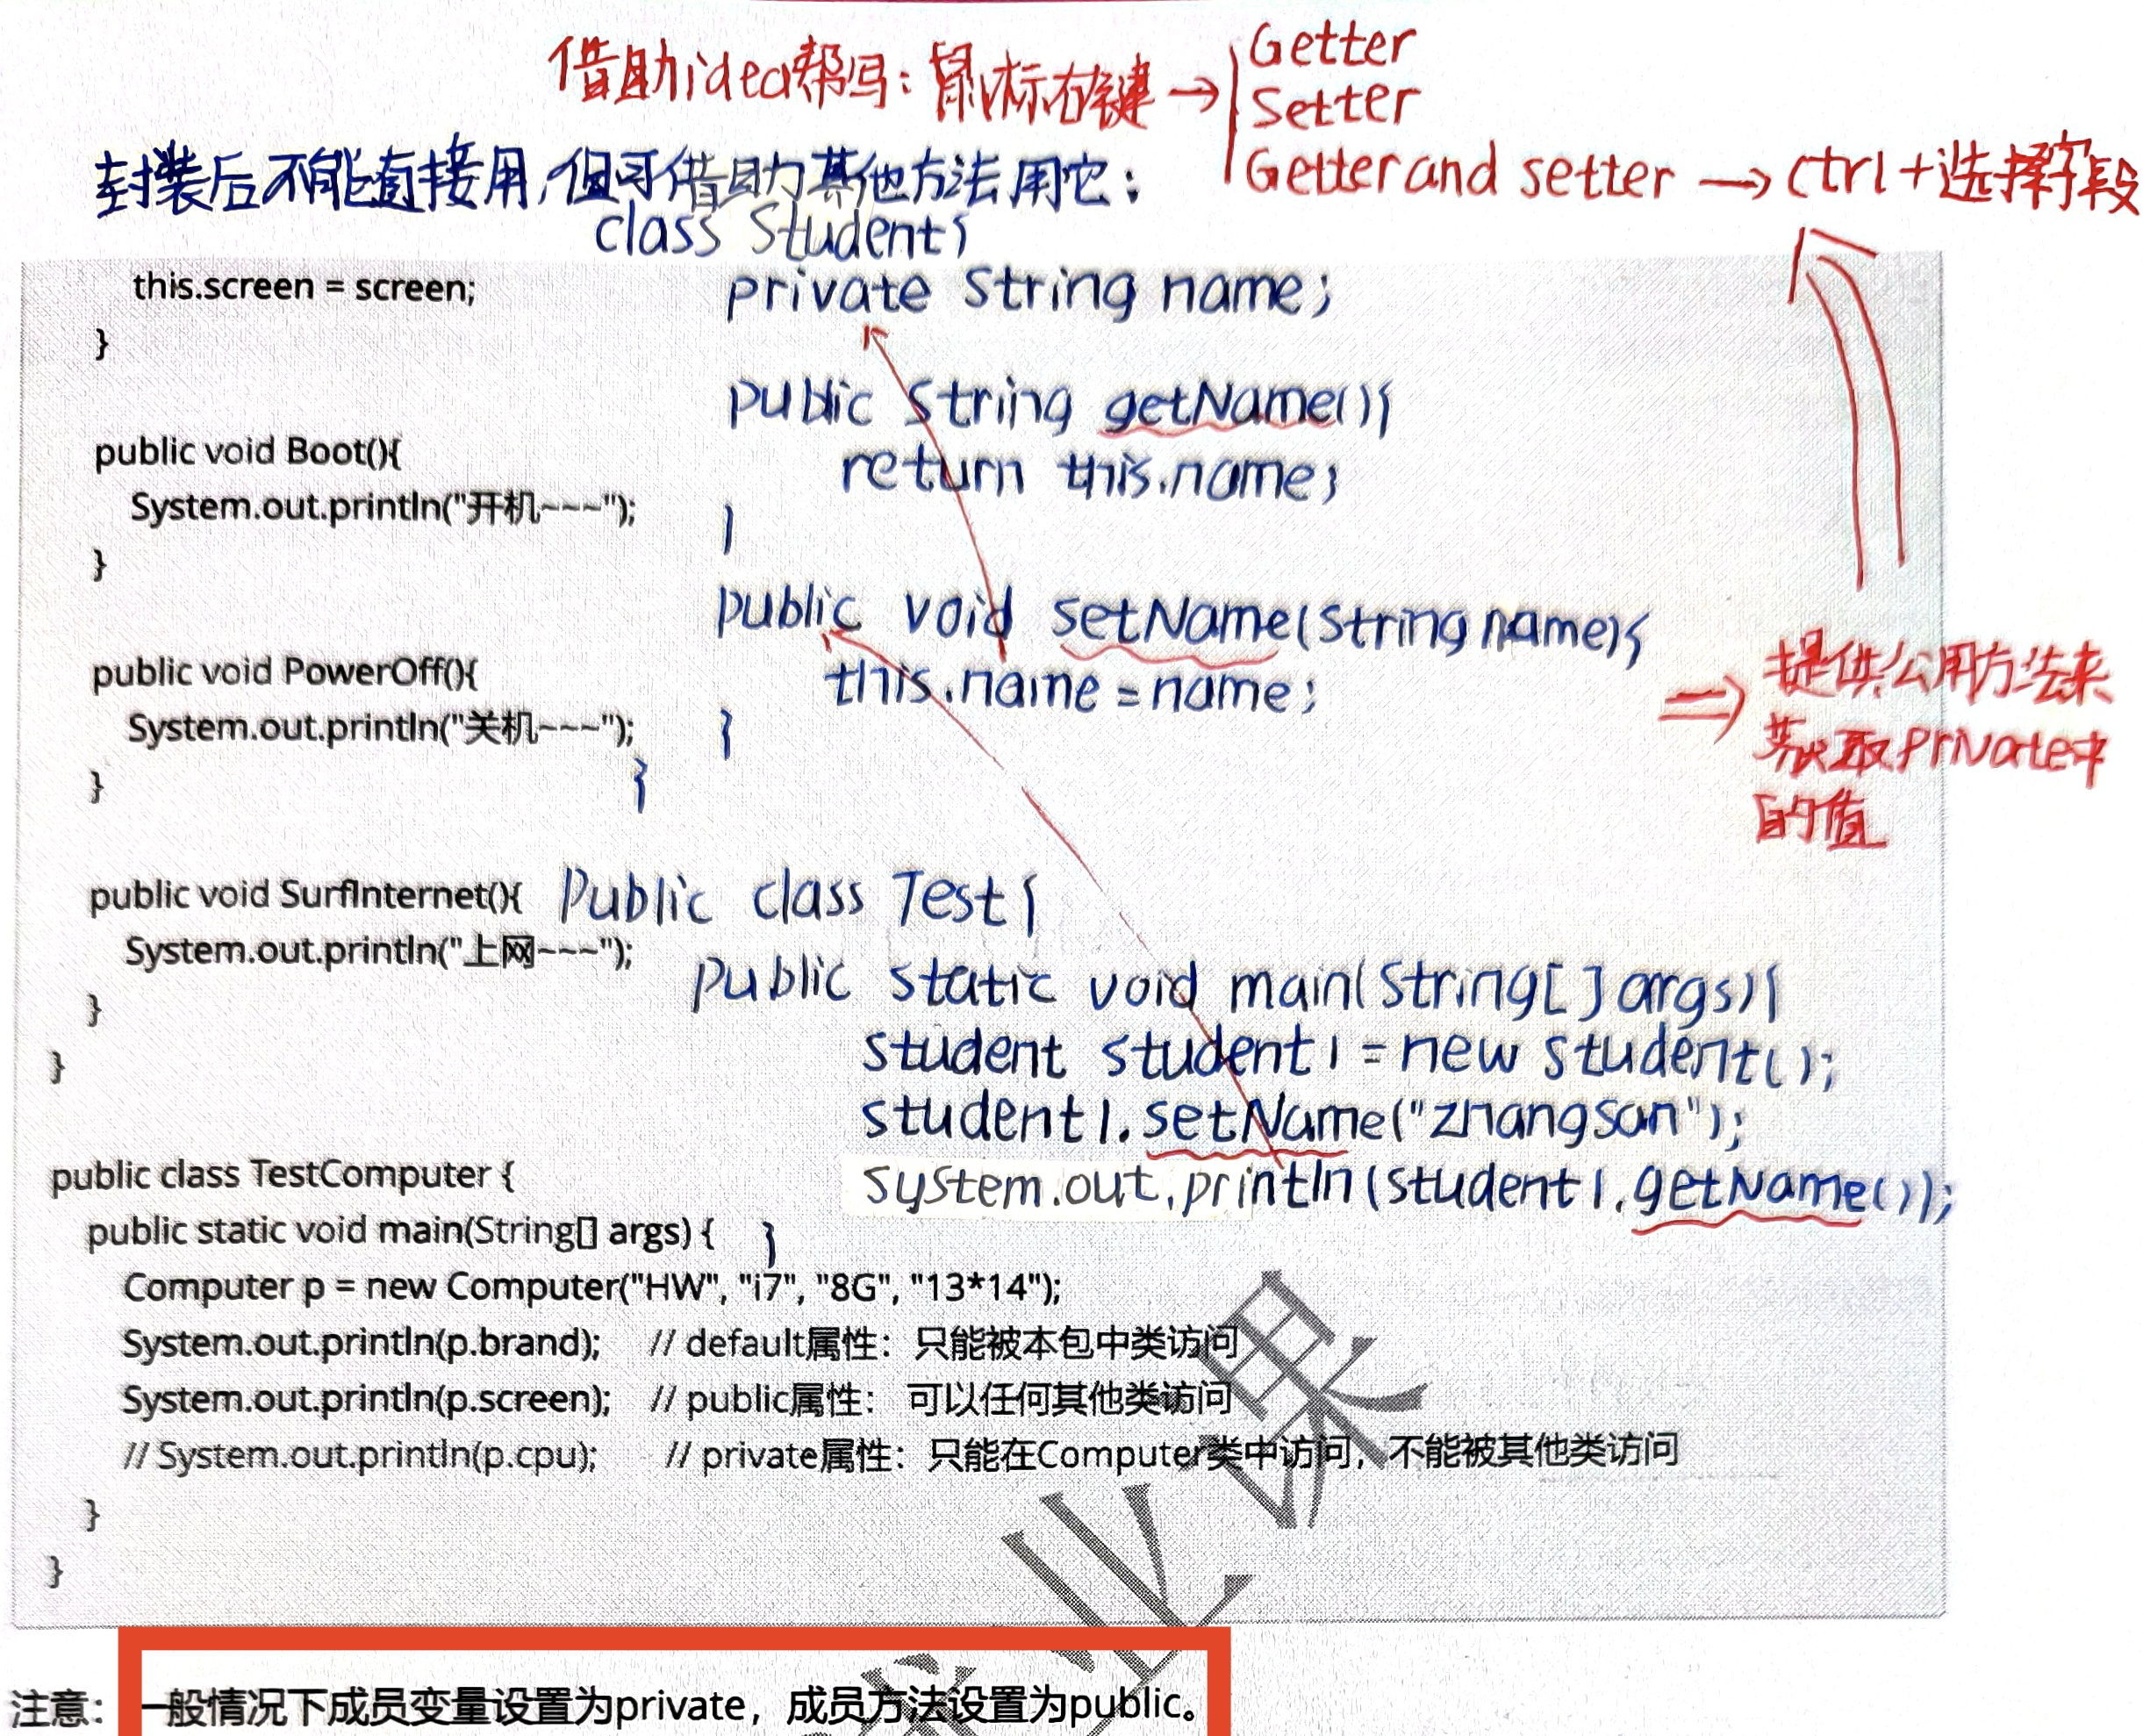 借助idea帮写：鼠标右键→
Getter
Setter
Getter and setter → ctrl+选择字段
封装后不能直接用,但可借助其他方法用它：
class Student{
private String name;
public String getName(){
return this.name;
}
public void setName(String name){
this.name = name;
}
}
⇒ 提供公用方法来
获取private中
的值
Public class Test{
Public static void main(String[] args){
student student1 = new student();
student1.setName("zhangsan");
System.out.println(student1.getName());
}
this.screen = screen;
}
public void Boot(){
System.out.println("开机~~~");
}
public void PowerOff(){
System.out.println("关机~~~");
}
public void SurfInternet(){
System.out.println("上网~~~");
}
}
public class TestComputer {
public static void main(String[] args) {
Computer p = new Computer("HW", "i7", "8G", "13*14");
System.out.println(p.brand); // default属性：只能被本包中类访问
System.out.println(p.screen); // public属性： 可以任何其他类访问
// System.out.println(p.cpu); // private属性：只能在Computer类中访问，不能被其他类访问
}
}
注意：一般情况下成员变量设置为private，成员方法设置为public。